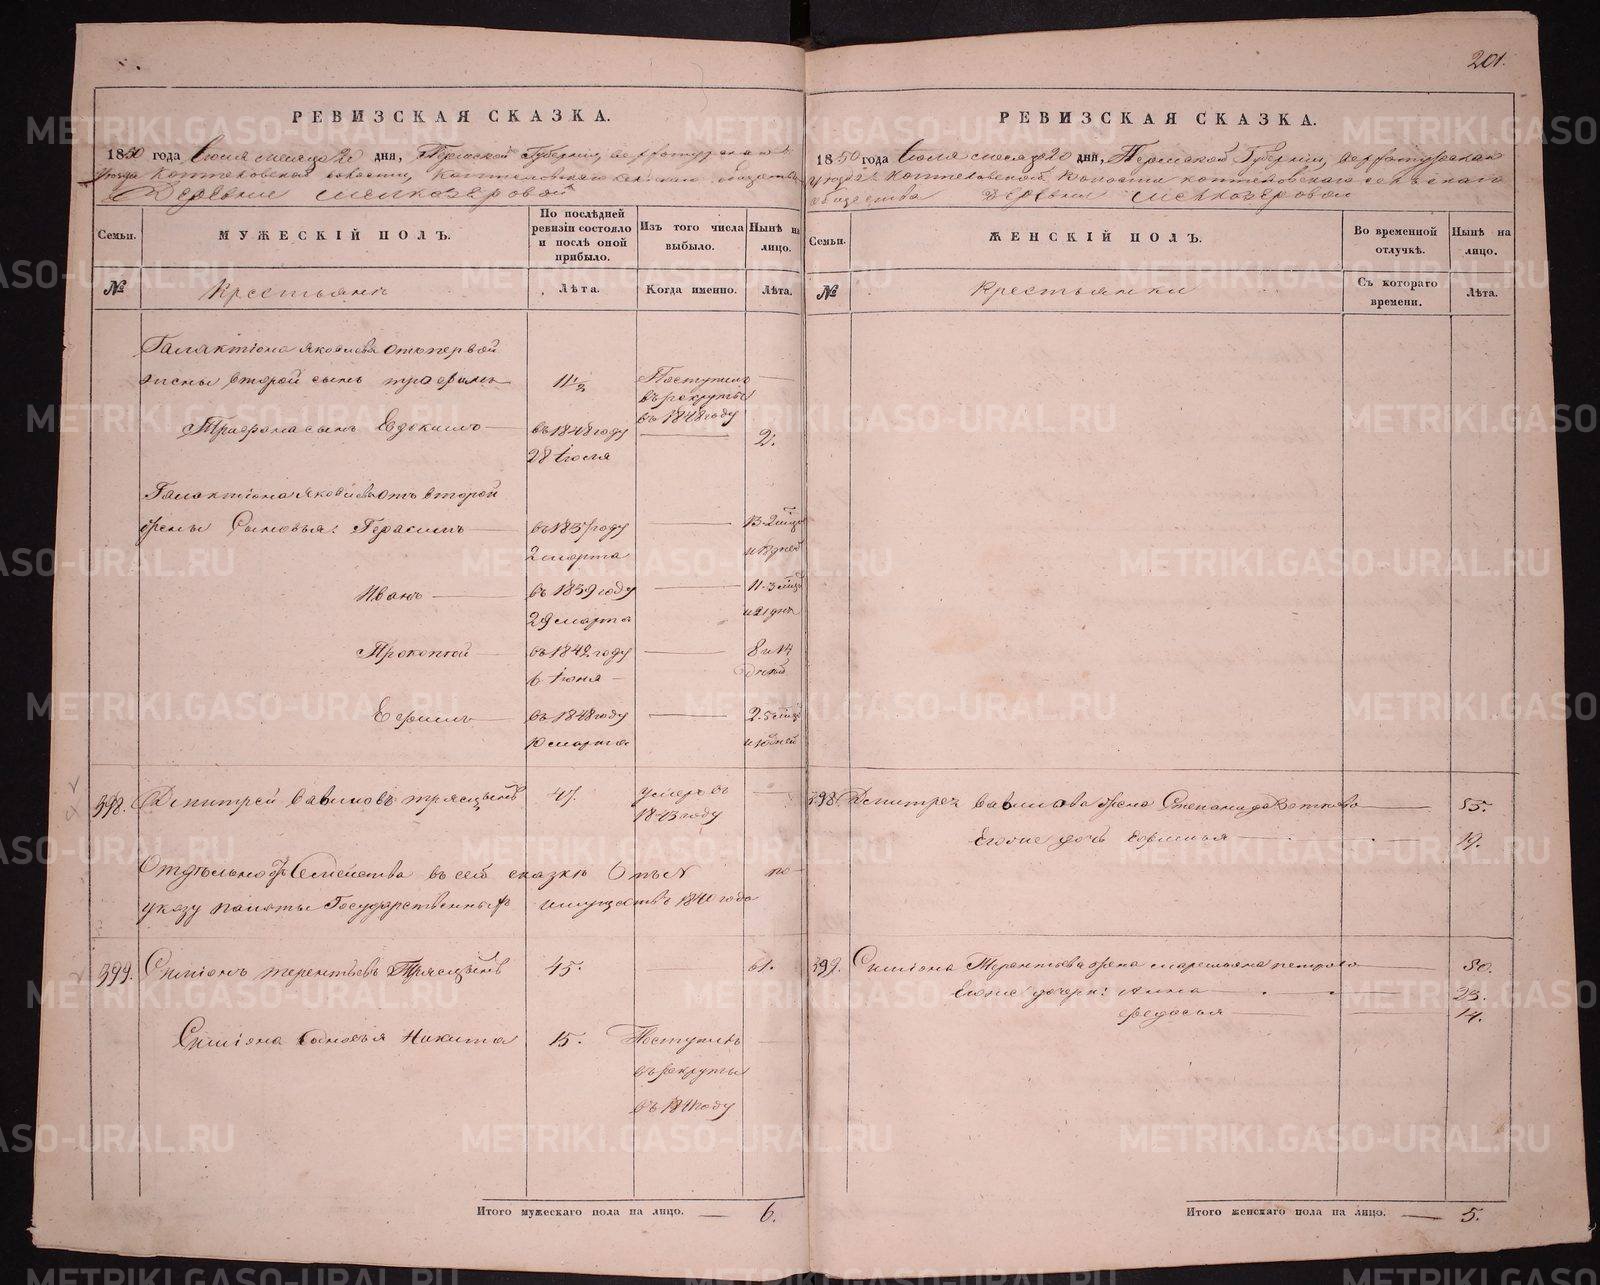 201.
РЕВИЗСКАЯ СКАЗКА.
1850 года Іюля месяца 20 дня, Пермской Губерніи, Верхотурскаго
уезда Коптеловской волости, Коптеловскаго сельскаго общества
Деревни
Семьи.
МУЖЕСКІЙ ПОЛЪ.
По послѣдней ревизіи состояло и послѣ оной прибыло.
Изъ того числа выбыло.
Нынѣ на лицо.
№
Крестьянъ
Лѣта.
Когда именно.
Лѣта.
Галактіона Яковлева отъ первой
жены второй сынъ Трофимъ 11½ Поступилъ
въ рекруты
въ 1848 году
Трофима сынъ Евдокимъ въ 1848 году 2.
28 Іюля
Галактіона Яковлева отъ второй
жены Сыновья: Герасимъ въ 1837 году
2 марта
Иванъ въ 1839 году
29 марта
Прокопей въ 1842 году 8 и 14
6 Іюня дней
Ефимъ въ 1848 году
10 марта
398. Дмитрей Савиновъ 47. умеръ въ
1843 году
Отдѣльно Семейства въ сей сказкѣ по
указу палаты Государственныхъ имуществъ 1840 года
399. Симіонъ Терентьевъ 45. 61.
Симіона Сыновья Никита 15. Поступилъ
въ рекруты
въ 1841 году
Итого мужескаго пола на лицо. 6.
РЕВИЗСКАЯ СКАЗКА.
1850 года Іюля месяца 20 дня, Пермской Губерніи, Верхотурскаго
уезда Коптеловской Волости Коптеловскаго сельскаго
общества Деревни
Семьи.
ЖЕНСКІЙ ПОЛЪ.
Во временной отлучкѣ.
Нынѣ на лицо.
№
Крестьянки
Съ котораго времени.
Лѣта.
398. Дмитрея Савинова жена Степанида 55.
Егоже дочь 19.
399. Симіона Терентьева жена Маремьяна Петрова 50.
Егоже дочери: Анна 23.
Федосья 14.
Итого женскаго пола на лицо. 5.
METRIKI.GASO-URAL.RU